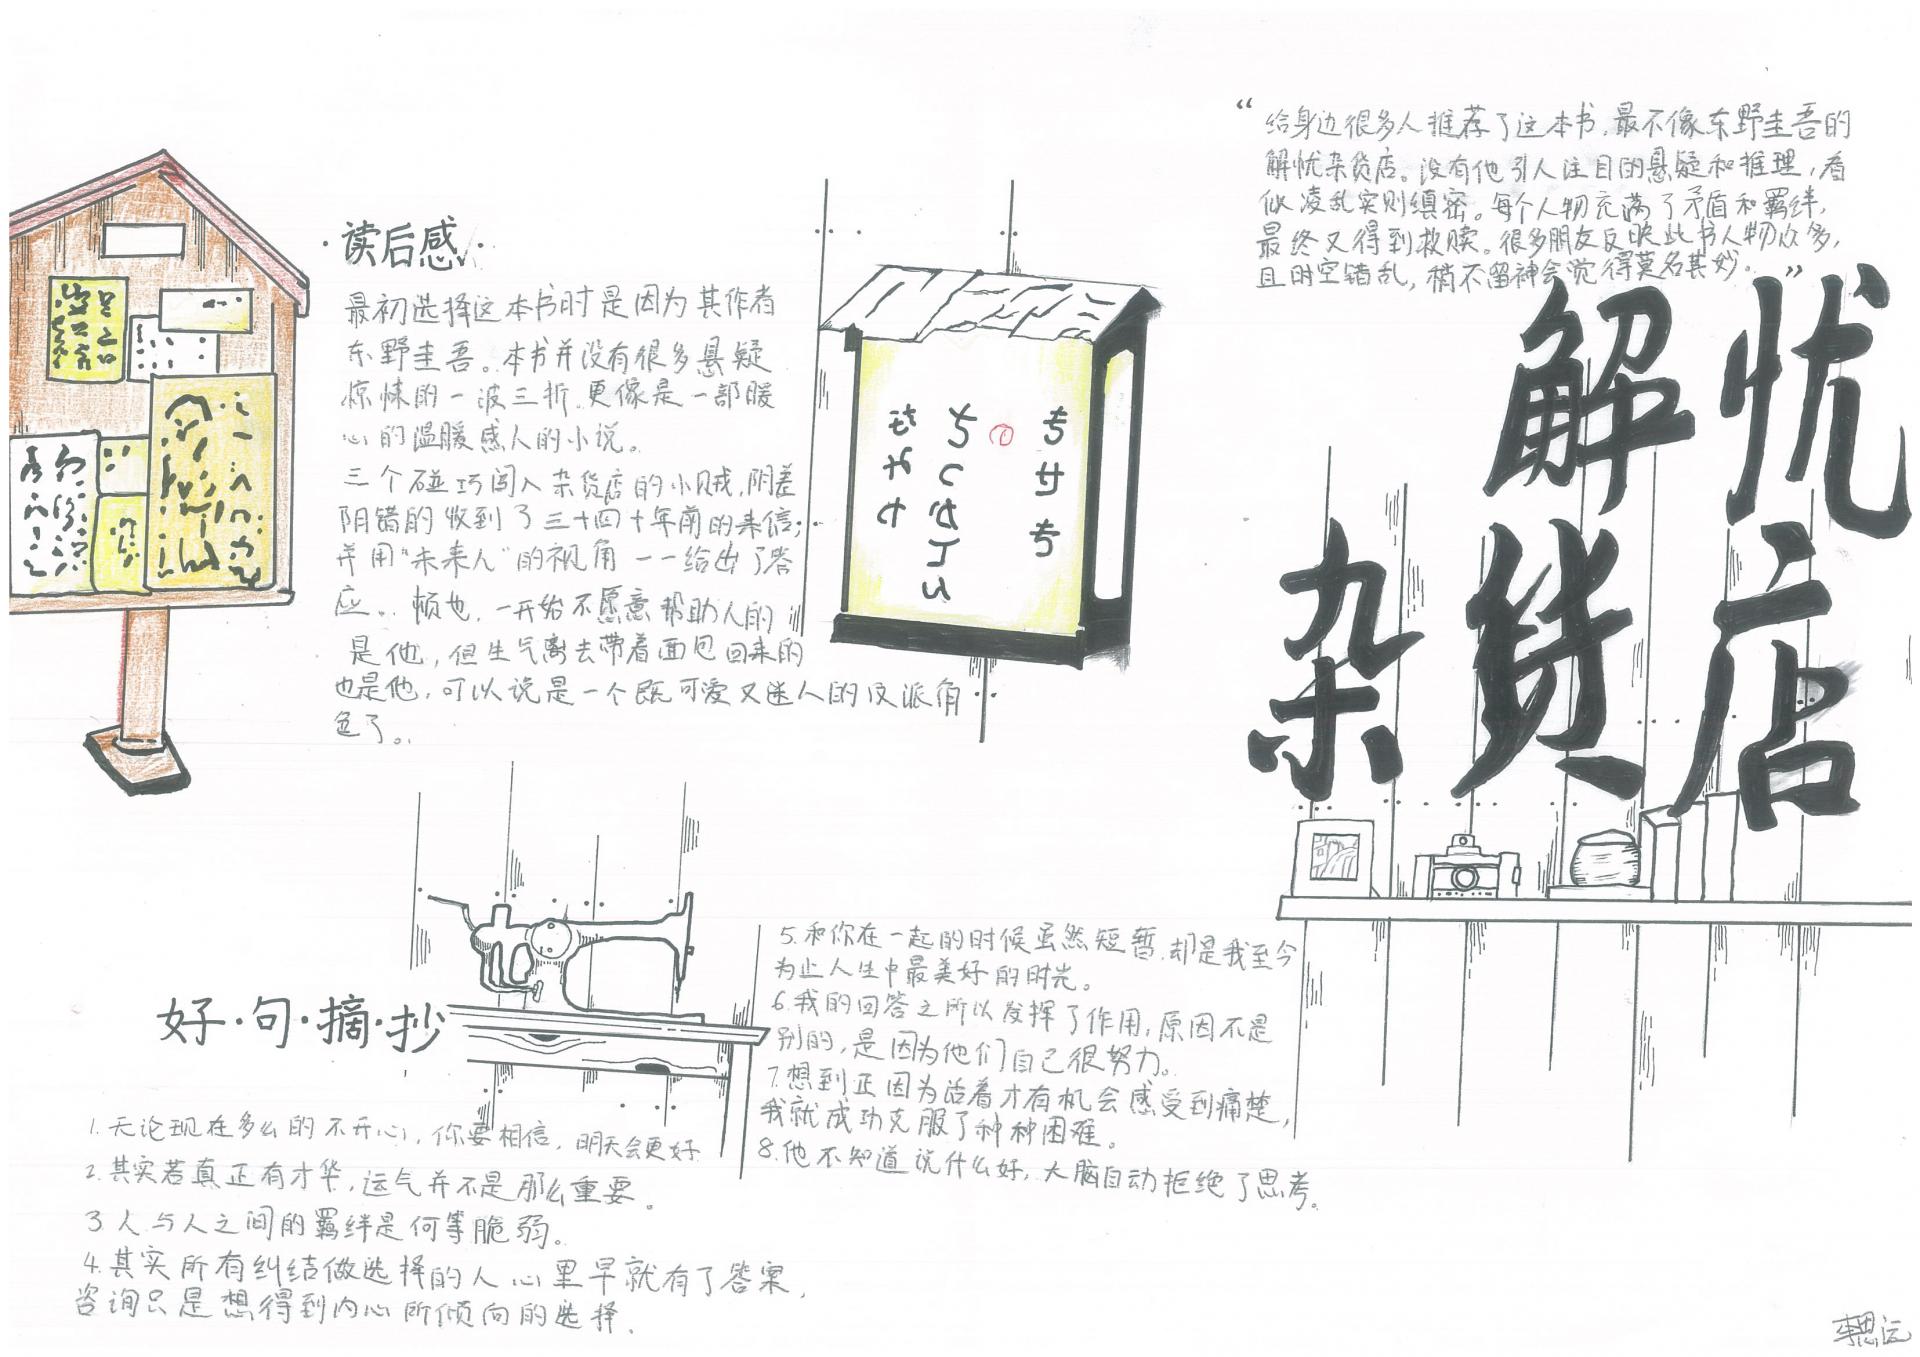 “给身边很多人推荐了这本书，最不像东野圭吾的
解忧杂货店。没有他引人注目的悬疑和推理，看
似凌乱实则缜密。每个人物充满了矛盾和羁绊，
最终又得到救赎。很多朋友反映此书人物众多，
且时空错乱，稍不留神会觉得莫名其妙。”
解忧
杂货店
·读后感·
最初选择这本书时是因为其作者
东野圭吾。本书并没有很多悬疑
惊悚的一波三折，更像是一部暖
心的温暖感人的小说。
三个碰巧闯入杂货店的小贼，阴差
阴错的收到了三十四十年前的来信；
并用“未来人”的视角一一给出了答
应。 一开始不愿意帮助人的
是他，但生气离去带着面包回来的
也是他，可以说是一个既可爱又迷人的反派角
色了。
好·句·摘·抄
1.无论现在多么的不开心，你要相信，明天会更好
2.其实若真正有才华，运气并不是那么重要。
3人与人之间的羁绊是何等脆弱。
4.其实所有纠结做选择的人心里早就有了答案，
咨询只是想得到内心所倾向的选择.
5.和你在一起的时候虽然短暂，却是我至今
为止人生中最美好的时光。
6.我的回答之所以发挥了作用，原因不是
别的，是因为他们自己很努力。
7.想到正因为活着才有机会感受到痛楚，
我就成功克服了种种困难。
8.他不知道说什么好，大脑自动拒绝了思考。
李思远